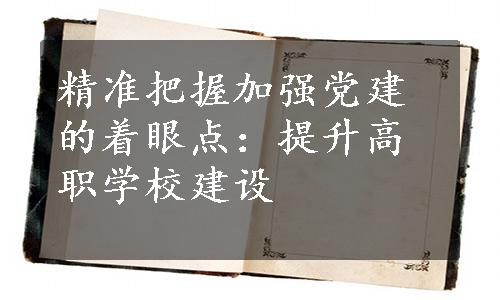 精准把握加强党建
的着眼点：提升高
职学校建设